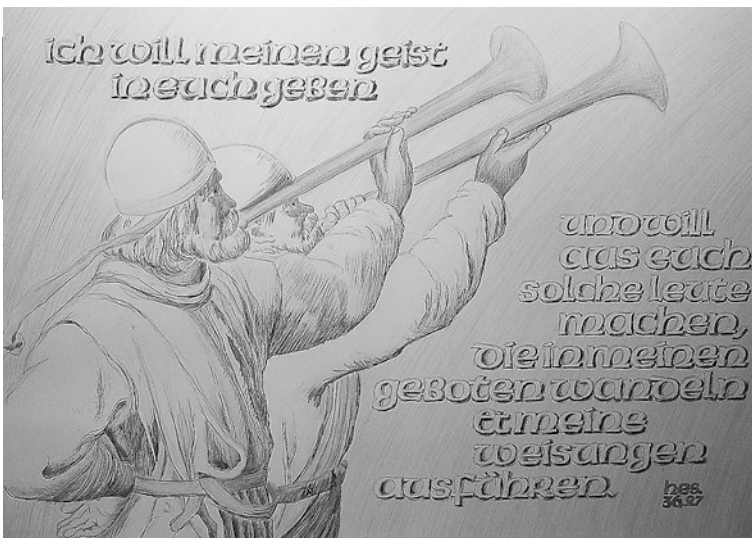 ich will meinen geist
in euch geben
und will
aus euch
solche leute
machen,
die in meinen
geboten wandeln
& meine
weisungen
ausführen.
hes.
36,27